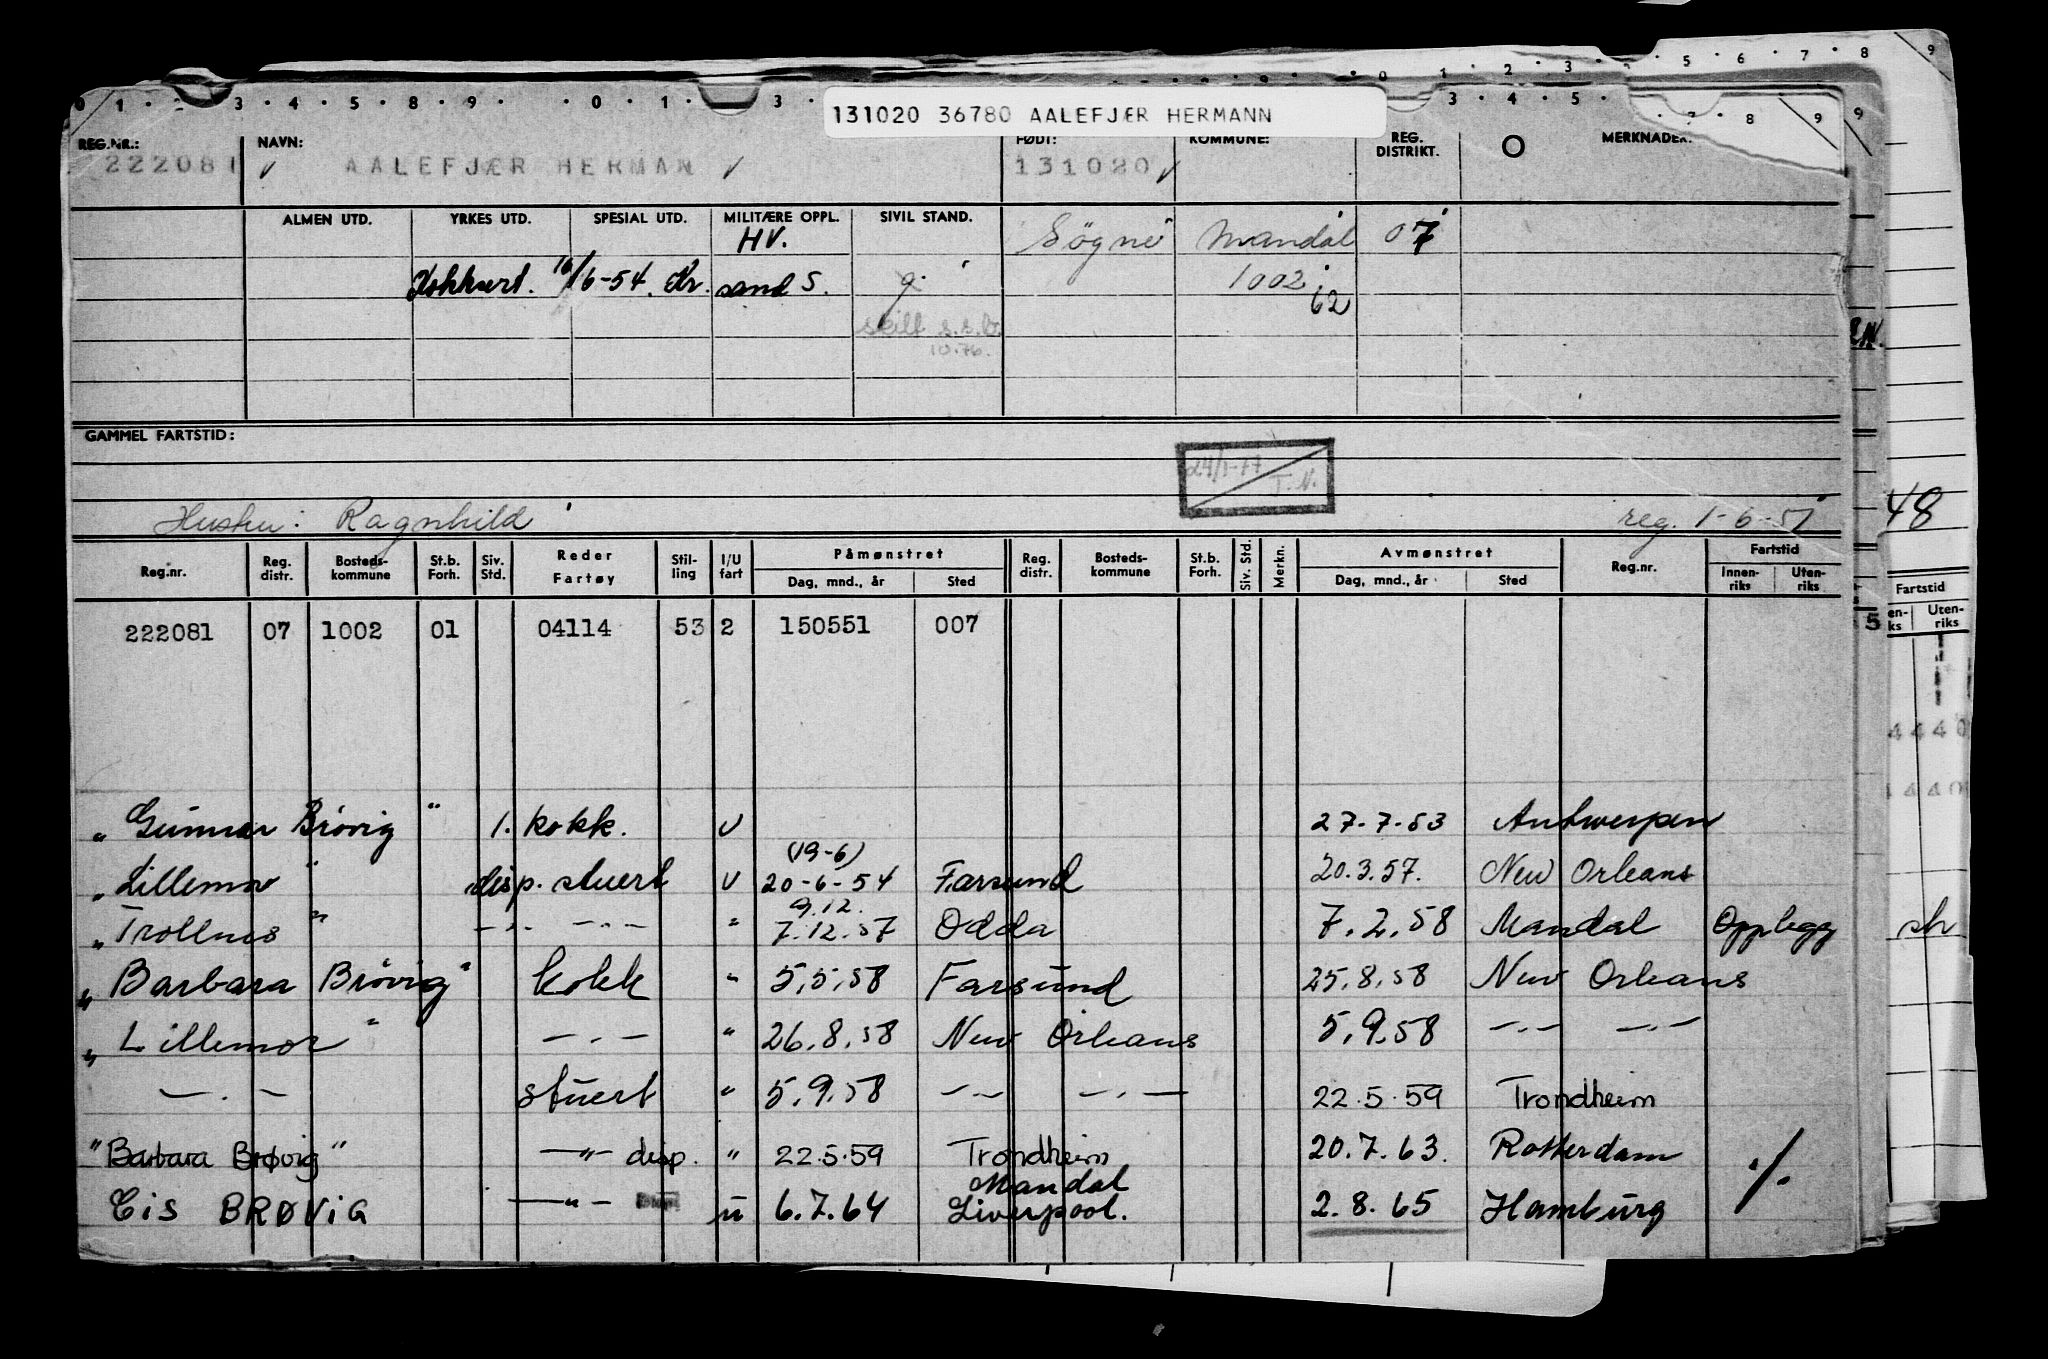 131020 36780 AALEFJÆR HERMANN
REG.NR.: NAVN: FØDT: KOMMUNE: REG. DISTRIKT. O MERKNADER.
222081 AALEFJÆR HERMAN 131020
ALMEN UTD. YRKES UTD. SPESIAL UTD. MILITÆRE OPPL. SIVIL STAND. Søgne Mandal 07
HV.
Kokksert. 16/6-54. Kr. sand S. g. 1002
62
skilt s.s.b.
10.76.
GAMMEL FARTSTID:
24/1-77
T.N.
Hustru: Ragnhild reg. 1-6-51
48
Reg.nr. Reg. distr. Bosteds-kommune St.b. Forh. Siv. Std. Reder Fartøy Stil-ling I/U fart Påmønstret Dag, mnd., år Sted Reg. distr. Bosteds-kommune St.b. Forh. Siv. Std. Merkn. Avmønstret Dag, mnd., år Sted Reg.nr. Fartstid Innen-riks Uten-riks
Fartstid
en-ks Uten-riks
222081 07 1002 01 04114 53 2 150551 007
5
" Gunnar Brøvig " 1. kokk. U 27-7-53 Antwerpen
(19-6)
" Lillemor " disp. stuert U 20-6-54 Farsund 20.3.57. New Orleans
9.12.
" Trollnes " -.- -.- " 7.12.57 Odda 7.2.58 Mandal Opplegg
" Barbara Brövig " kokk " 5.5.58 Farsund 25.8.58 New Orleans
" Lillemor " -.- " 26.8.58 New Orleans 5.9.58 -.- -.-
-.- stuert " 5.9.58 -.- -.- 22.5.59 Trondheim
"Barbara Brøvig" -"- disp. " 22.5.59 Trondheim 20.7.63. Rotterdam
Mandal
Cis BRØVIG -"- u 6.7.64 Liverpool. 2.8.65 Hamburg ./.